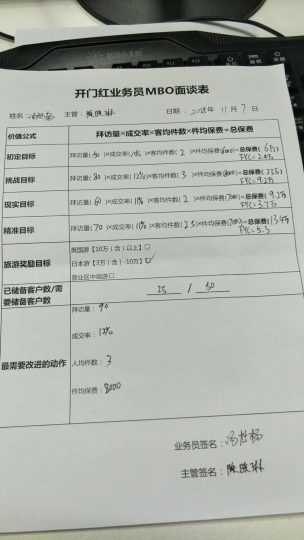 开门红业务员MBO面谈表
姓名： 主管：陈 琳 日期：2018年 11月 7日
价值公式 拜访量×成交率×客均件数×件均保费=总保费
初定目标 拜访量(50)×成交率(10%)×客均件数(2)×件均保费(6000)=总保费(6万)
FYC=2.4万
挑战目标 拜访量(80)×成交率(12%)×客均件数(3)×件均保费(8000)=总保费(23万)
FYC=9.2万
现实目标 拜访量(60)×成交率(11%)×客均件数(2)×件均保费(7000)=总保费(9.2万)
FYC=3.7万
精准目标 拜访量(70)×成交率(11%)×客均件数(2.5)×件均保费(7000)=总保费(13.4万)
FYC=5.3
旅游奖励目标
美国游【10万（含）以上】□
日本游【3万（含）-10万】☑
营业区中旅游□
已储备客户数/需要储备客户数 25 / 50
最需要改进的动作
拜访量：90
成交率：12%
人均件数：3
件均保费：8000
业务员签名：
主管签名：陈 琳